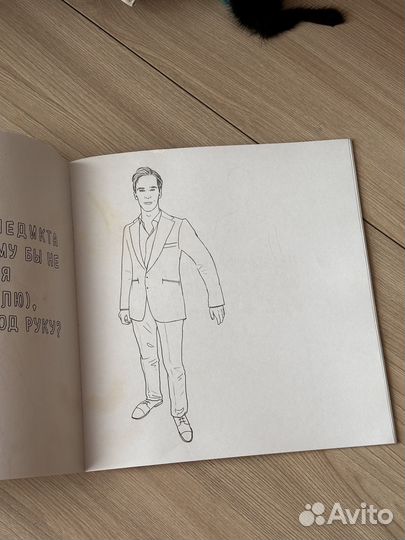 ЕДИКТА
МУ БЫ НЕ
Я
ЛЮ),
ОД РУКУ?
Avito